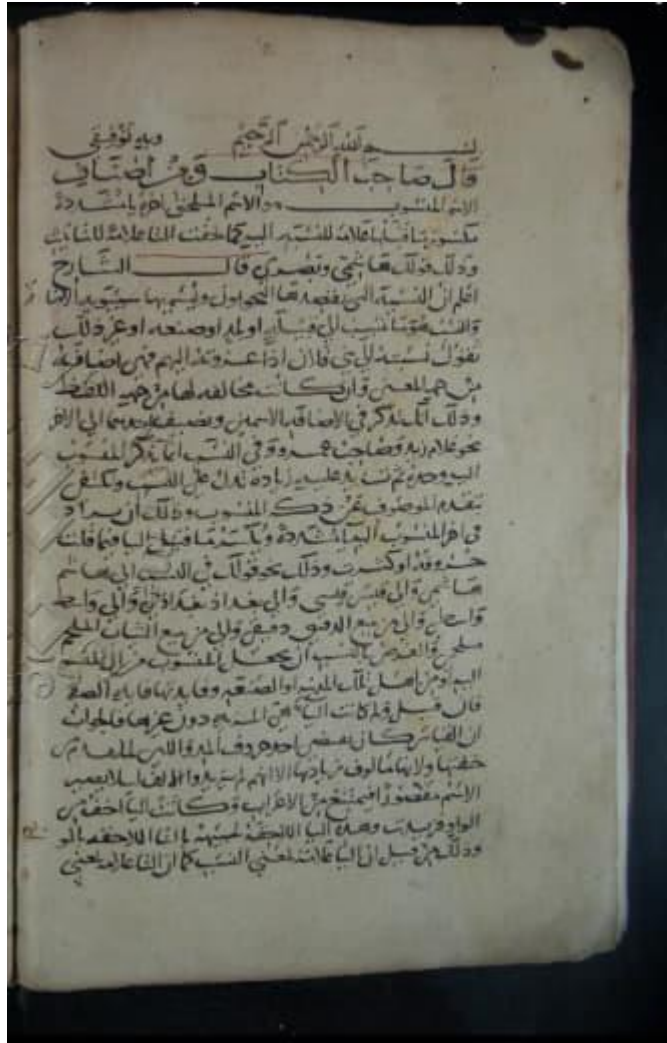 بسم الله الرحمن الرحيم وبه توفيقي
قال صاحب الكتاب ومن اصناف
الاسم المنسوب هو الاسم الملحق باخره ياء مشددة
مكسور ما قبلها علامة للنسبة اليه كما الحقت التاء علامة للتانيث
وذلك قولك هاشمي وبصري قال الشارح
اعلم ان النسبة التي يقصدها النحويون ويسميها سيبويه الاضافة
والنسب ينسب الى قبيلة او بلد او صنعة او غير ذلك
تقول نسبته الى بني فلان اذا عزوته اليهم فهي اضافة
من جهة المعنى وان كانت مخالفة لها من جهة اللفظ
وذلك انك تذكر في الاضافة الاسمين وتضيف احدهما الى الاخر
نحو غلام زيد وصاحب عمرو وفي النسب انما تذكر المنسوب
اليه وحده ثم تزيد عليه زيادة تدل على النسب وتكتفي
بتقدم الموصوف عن ذكر المنسوب وذلك ان يزاد
في اخر المنسوب اليه ياء مشددة ويكسر ما قبل الياء فيما قلت
حروفه او كثرت وذلك نحو قولك في النسب الى هاشم
هاشمي والى قيس قيسي والى بغداذ بغداذي والى واسط
واسطي والى من يبيع الدقيق دقيقي والى من يبيع الثياب الملحم
ملحمي والغرض بالنسب ان يجعل المنسوب من ال المنسوب
اليه او من اهل تلك المدينة او الصنعة وفايدتها فايدة الصفة
فان قيل ولم كانت الياء هي المزيدة دون غيرها فالجواب
ان القياس كان يقتضي احد حروف المد واللين لما تقدم من
خفتها ولانها مالوف زيادتها الا انهم لم يزيدوا الالف ليلا يصير
الاسم مقصورا فيمتنع من الاعراب وكانت الياء اخف من
الواو فزيدت وهذه الياء اللاحقة شبيهة بالتاء اللاحقة
وذلك من قبل ان الياء علامة لمعنى النسب كما ان التاء علامة لمعنى